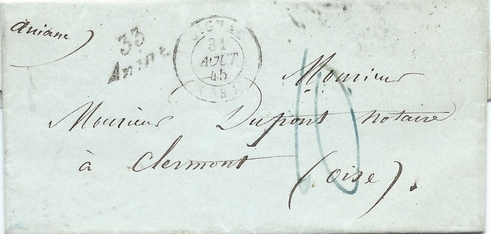 Aniane
33
Aniane
GIGNAC
31
AOUT
45
(33)
Monsieur
Monsieur Dupont notaire
à Clermont (oise).
10